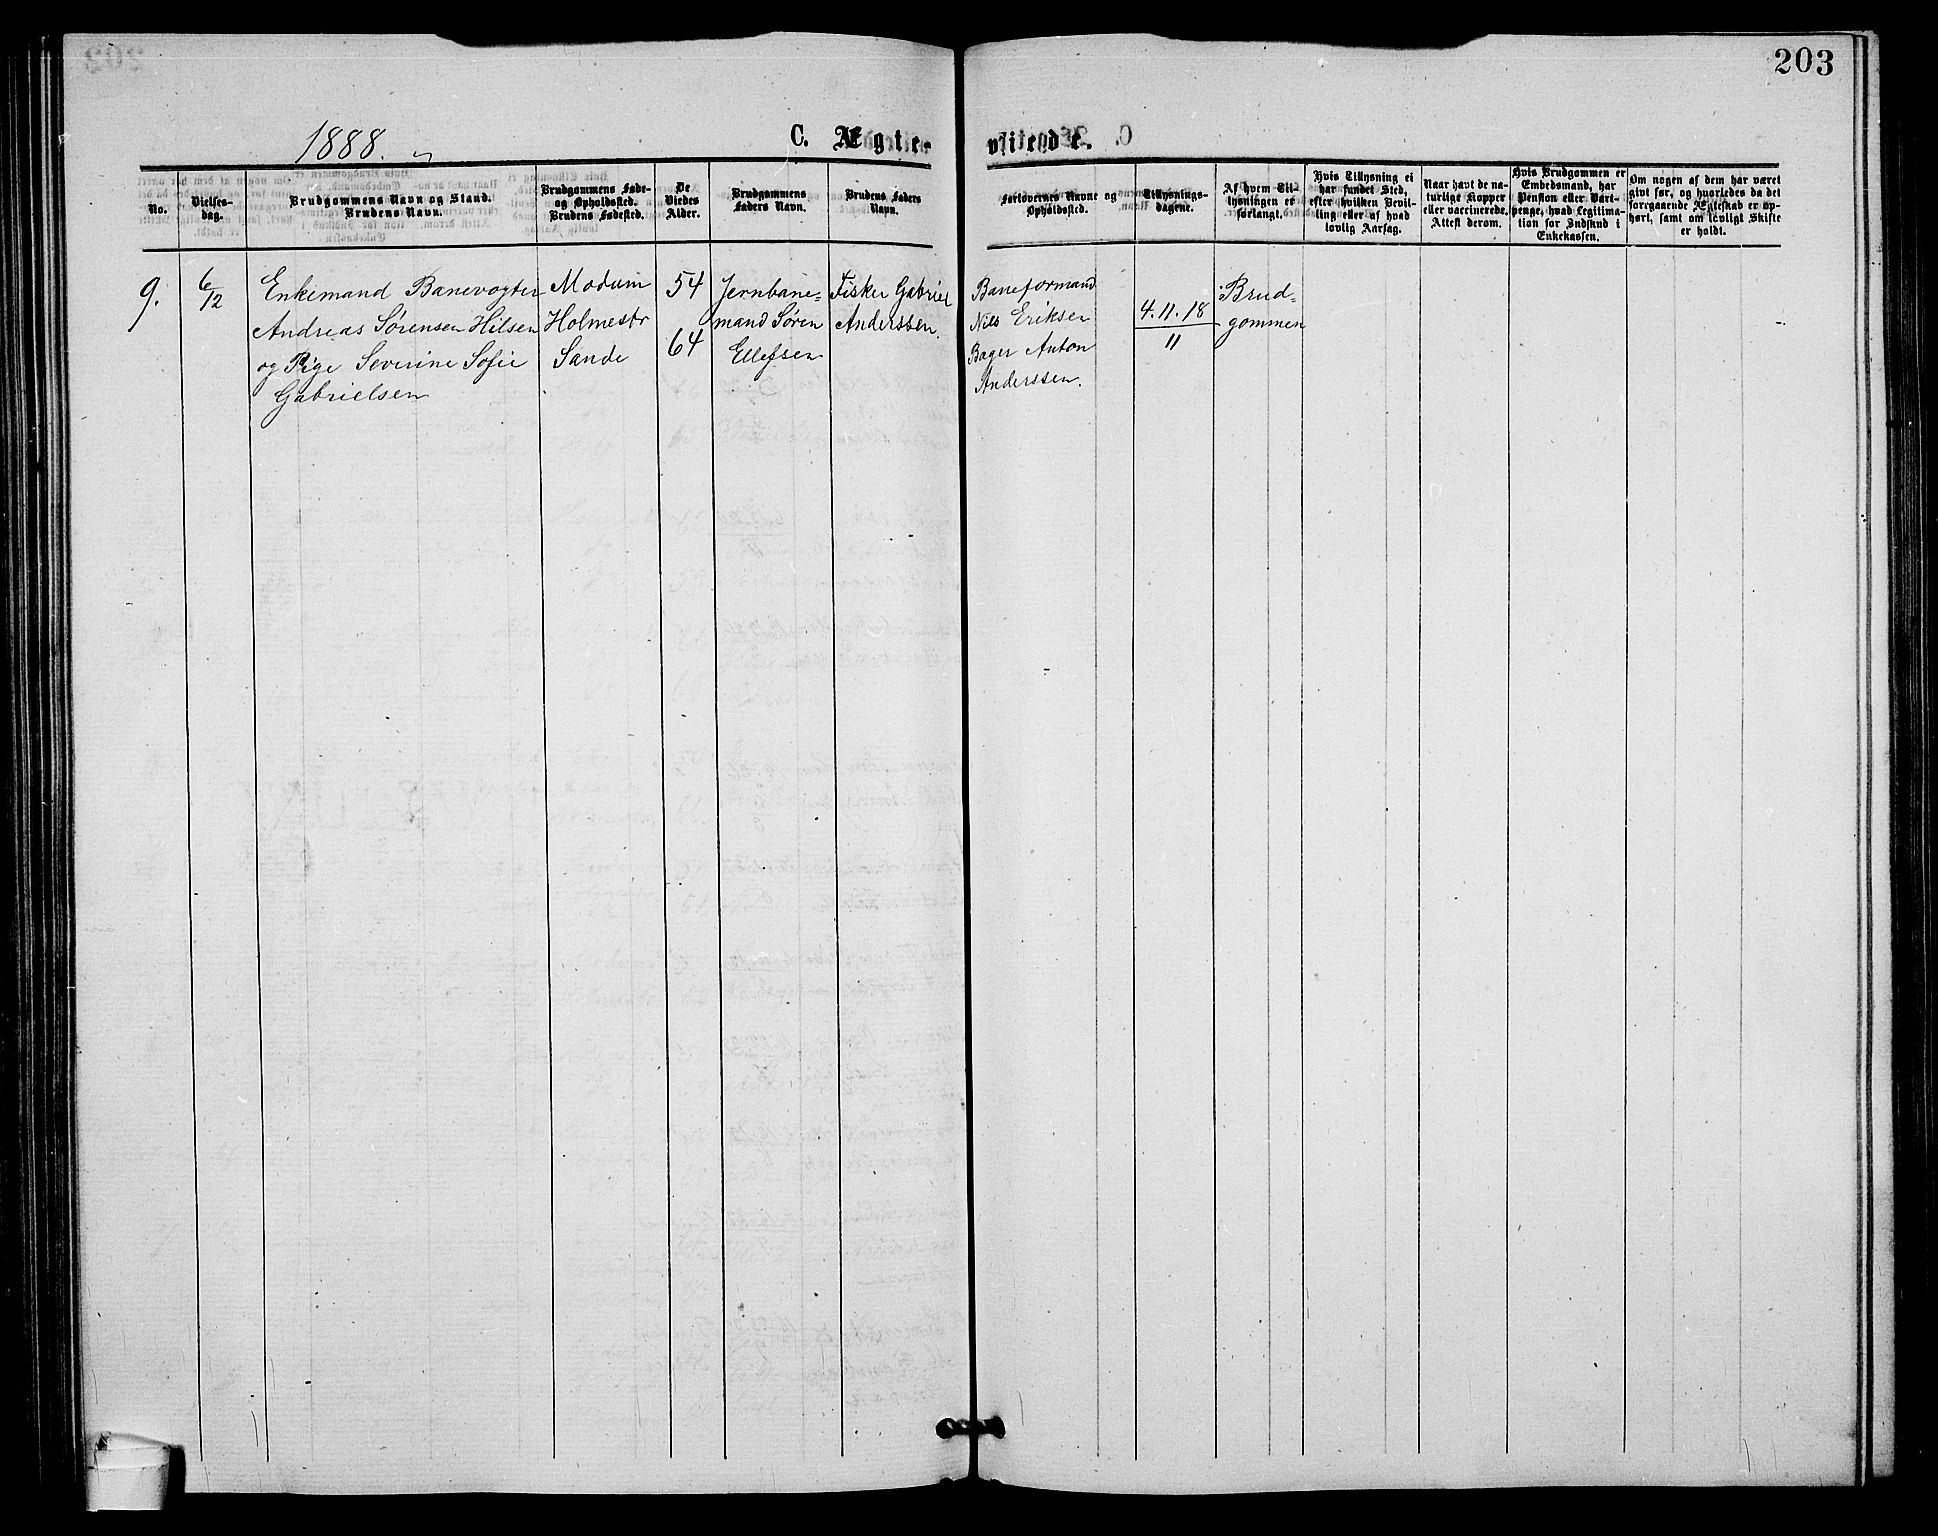 203
1888.
C. Ægte-
viede.
No.
Vielses-
dag.
Brudgommens Navn og Stand.
Brudens Navn.
Brudgommens Føde-
og Opholdssted.
Brudens Fødested.
De
Viedes
Alder.
Brudgommens
Faders Navn.
Brudens Faders
Navn.
Forlovernes Navne og
Opholdssted.
Tillysnings-
dagene.
Af hvem Til-
lysningen er
forlangt.
Hvis Tillysning ei
har fundet Sted,
efter hvilken Bevil-
ling eller af hvad
lovlig Aarsag.
Naar havt de na-
turlige Kopper
eller vaccinerede.
Attest derom.
Hvis Brudgommen er
Embedsmand, har
Pension eller Vart-
penge, hvad Legitima-
tion for Indskud i
Enkekassen.
Om nogen af dem har været
givt før, og hvorledes da det
foregaaende Ægteskab er op-
hørt, samt om lovligt Skifte
er holdt.
9.
6/12
Enkemand Banevogter
Andreas Sørensen Hilsen
og Pige Severine Sofie
Gabrielsen
Modum
Holmestr
Sande
54
64
Jernbane=
mand Søren
Ellefsen
Fisker Gabriel
Anderssen.
Baneformand
Nils Eriksen
Bager Anton
Anderssen.
4. 11. 18
11
Brud=
gommen